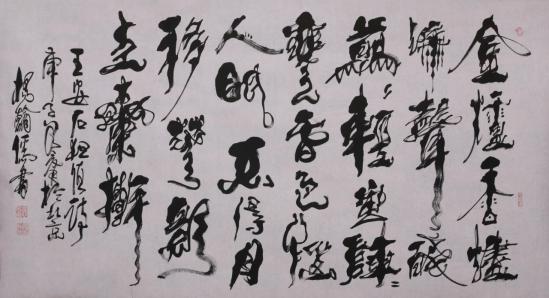 金爐香燼
漏聲殘
翦〻輕風陣〻
寒春色惱
人眠不得月
移花影
上欄杆
王安石夜值詩
庚子 於北京
楊